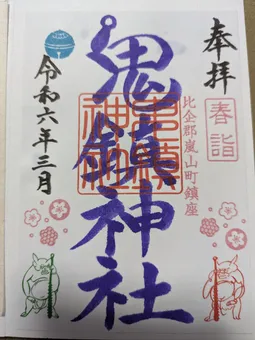 奉拝
春詣
比企郡嵐山町鎮座
鬼鎮神社
令和六年三月